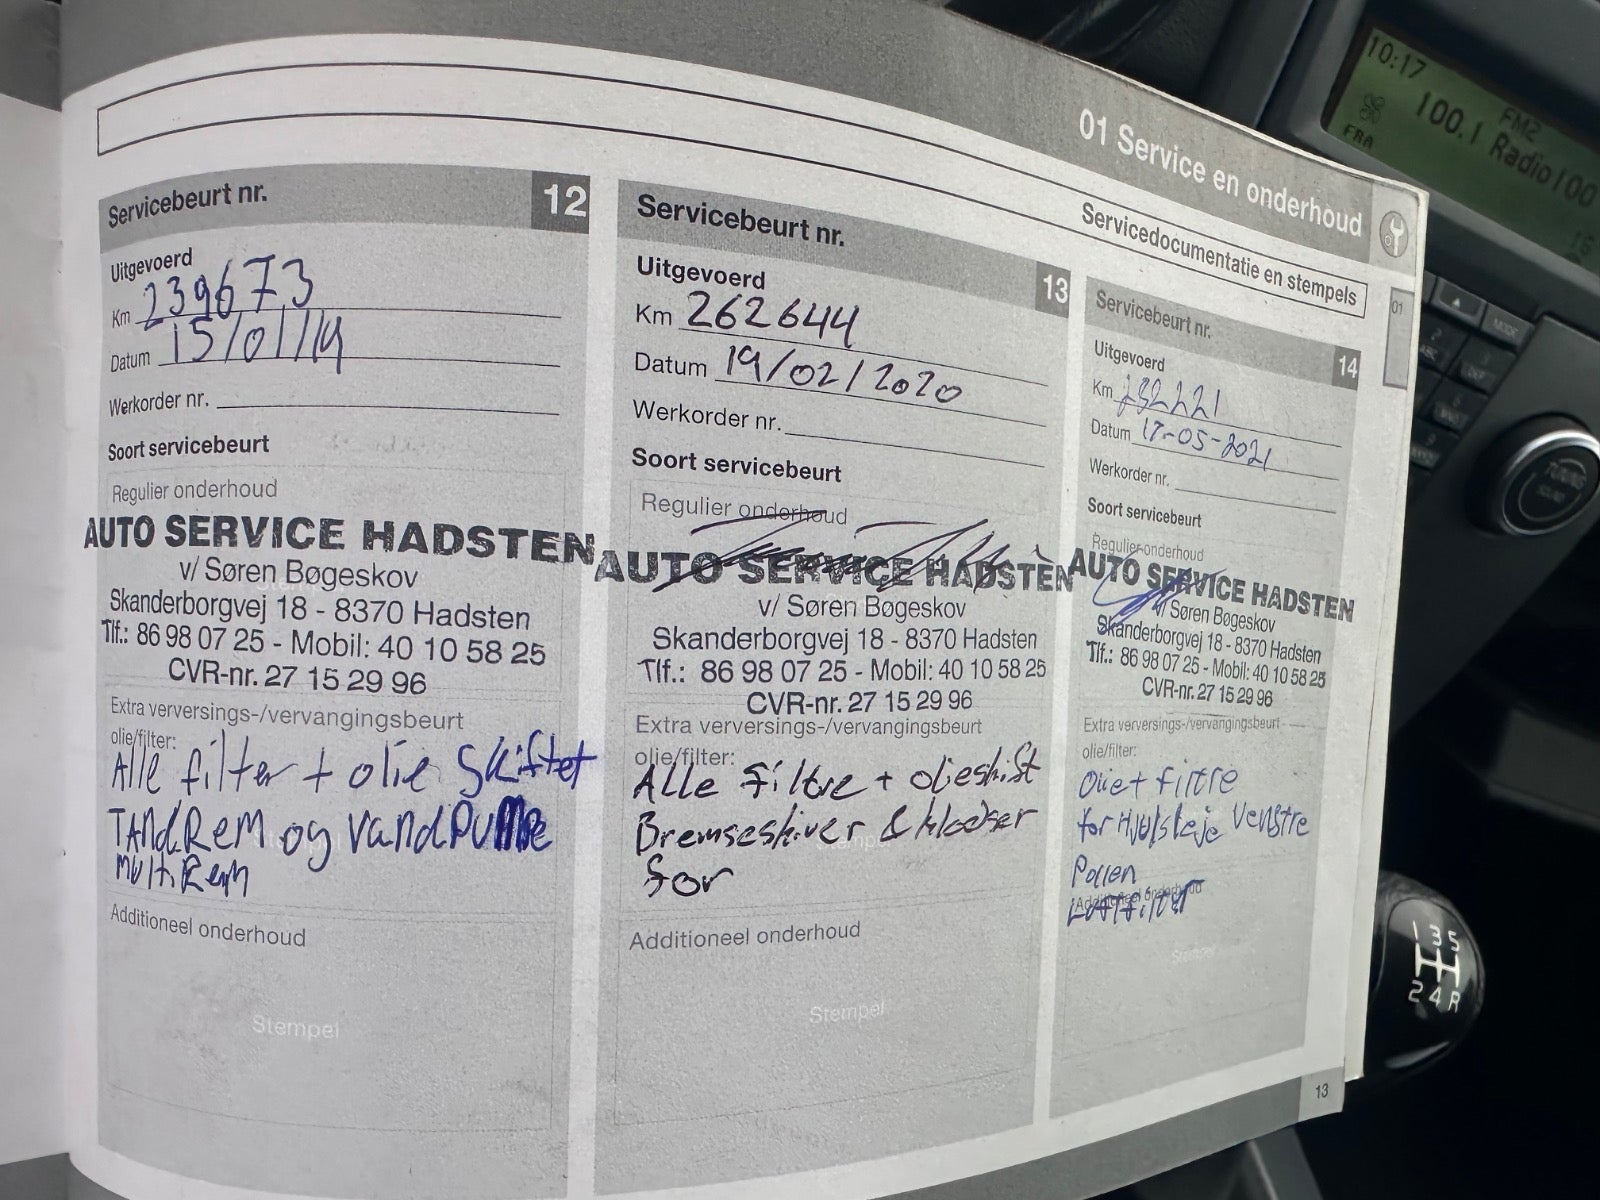 01 Service en onderhoud
Servicedocumentatie en stempels
01
Servicebeurt nr. 12
Uitgevoerd
Km 239673
Datum 15/01/19
Werkorder nr.
Soort servicebeurt
Regulier onderhoud
AUTO SERVICE HADSTEN
v/ Søren Bøgeskov
Skanderborgvej 18 - 8370 Hadsten
Tlf.: 86 98 07 25 - Mobil: 40 10 58 25
CVR-nr. 27 15 29 96
Extra verversings-/vervangingsbeurt
olie/filter:
Alle filter + olie skiftet
TANdRem og vandPUMPe
multiRem
Additioneel onderhoud
Stempel
Servicebeurt nr. 13
Uitgevoerd
Km 262644
Datum 19/02/2020
Werkorder nr.
Soort servicebeurt
Regulier onderhoud
AUTO SERVICE HADSTEN
v/ Søren Bøgeskov
Skanderborgvej 18 - 8370 Hadsten
Tlf.: 86 98 07 25 - Mobil: 40 10 58 25
CVR-nr. 27 15 29 96
Extra verversings-/vervangingsbeurt
olie/filter:
Alle filtre + olieskift
Bremseskiver & klodser
for
Additioneel onderhoud
Stempel
Servicebeurt nr. 14
Uitgevoerd
Km 282221
Datum 17-05-2021
Werkorder nr.
Soort servicebeurt
Regulier onderhoud
AUTO SERVICE HADSTEN
v/ Søren Bøgeskov
Skanderborgvej 18 - 8370 Hadsten
Tlf.: 86 98 07 25 - Mobil: 40 10 58 25
CVR-nr. 27 15 29 96
Extra verversings-/vervangingsbeurt
olie/filter:
Olie+ filtre
for Hjulsleje Venstre
Pollen
Additioneel onderhoud
Luftfilter
Stempel
13
10:17
FM2
FRA
100.1 Radio100
MODE
TUNING
1 3 5
2 4 R